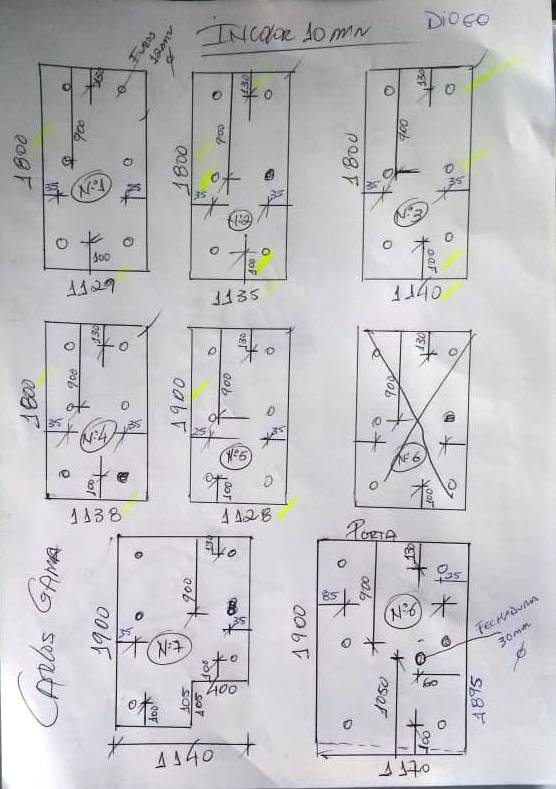 INCOLOR 10MM
DIOGO
FUROS
12MM
Ø
1800
150
900
35
35
Nº1
100
1129
1800
130
900
35
35
Nº2
100
1135
1800
130
900
35
35
Nº3
100
1140
1800
130
900
35
35
Nº4
100
1138
1900
130
900
25
35
Nº5
100
1128
130
900
Nº6
100
CARLOS GAMA
1900
130
900
35
35
Nº7
100
400
105
105
100
1140
PORTA
1900
130
900
85
25
Nº6
FECHADURA
30MM
Ø
60
1050
1895
100
1170